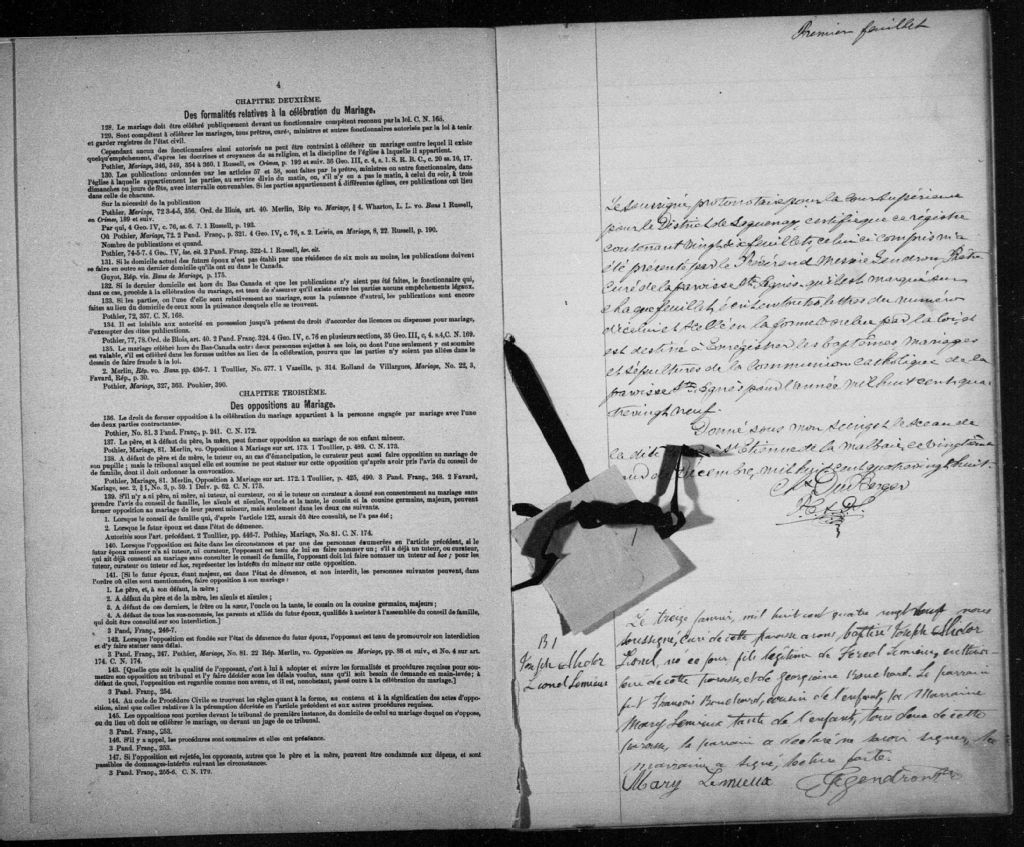 4
CHAPITRE DEUXIÈME.
Des formalités relatives à la célébration du Mariage.
128. Le mariage doit être célébré publiquement devant un fonctionnaire compétent reconnu par la loi. C. N. 165.
129. Sont compétents à célébrer les mariages, tous prêtres, curés, ministres et autres fonctionnaires autorisés par la loi à tenir
et garder registres de l'état civil.
Cependant aucun des fonctionnaires ainsi autorisés ne peut être contraint à célébrer un mariage contre lequel il existe
quelqu'empêchement, d'après les doctrines et croyances de sa religion, et la discipline de l'église à laquelle il appartient.
Pothier, Mariage, 346, 349, 354 à 360. 1 Russell, on Crimes, p. 192 et suiv. 36 Geo. III, c. 4, s. 1. S. R. B. C., c. 20 ss. 16, 17.
130. Les publications ordonnées par les articles 57 et 58, sont faites par le prêtre, ministre ou autre fonctionnaire, dans
l'église à laquelle appartiennent les parties, au service divin du matin, ou, s'il n'y en a pas le matin, à celui du soir, à trois
dimanches ou jours de fête, avec intervalle convenables. Si les parties appartiennent à différentes églises, ces publications ont lieu
dans celle de chacune.
Sur la nécessité de la publication
Pothier, Mariage, 72 3-4-5, 356. Ord. de Blois, art. 40. Merlin, Rép vo. Mariage, § 4. Wharton, L. L. vo. Bans 1 Russell,
on Crimes, 189 et suiv.
Par qui, 4 Geo. IV, c. 76, ss. 6. 7. 1 Russell, p. 192.
Où Pothier, Mariage, 72. 2 Pand. Franç. p. 321. 4 Geo. IV, c. 76, s. 2. Lewis, on Mariage, 8, 22. Russell, p. 190.
Nombre de publications et quand.
Pothier, 74-5-7. 4 Geo. IV, loc. cit. 2 Pand. Franç. 322-4. 1 Russell, loc. cit.
131. Si le domicile actuel des futurs époux n'est pas établi par une résidence de six mois au moins, les publications doivent
se faire en outre au dernier domicile qu'ils ont eu dans le Canada.
Guyot, Rép. vis. Bans de Mariage, p. 175.
132. Si le dernier domicile est hors du Bas Canada et que les publications n'y aient pas été faites, le fonctionnaire qui,
dans ce cas, procède à la célébration du mariage, est tenu de s'assurer qu'il existe entre les parties aucuns empêchements légaux.
133. Si les parties, ou l'une d'elle sont relativement au mariage, sous la puissance d'autrui, les publications sont encore
faites au lieu du domicile de ceux sous la puissance desquels elle se trouvent.
Pothier, 72, 357. C. N. 168.
134. Il est loisible aux autorité en possession jusqu'à présent du droit d'accorder des licences ou dispenses pour mariage,
d'exempter des dites publications.
Pothier, 77, 78. Ord. de Blois, art. 40. 2 Pand. Franç. 324. 4 Geo. IV, c. 76 en plusieurs sections, 35 Geo. III, c. 4. s.4, C. N. 169.
135. Le mariage célébré hors du Bas-Canada entre deux personnes sujettes à ses lois, ou dont l'une seulement y est soumise
est valable, s'il est célébré dans les formes usitées au lieu de la célébration, pourvu que les parties n'y soient pas allées dans le
dessein de faire fraude à la loi.
2. Merlin, Rép. vo. Bans pp. 436-7. 1 Toullier, No. 577. 1 Vazeille, p. 314. Rolland de Villargues, Mariage, No. 22, 3,
Favard, Rép., p. 30.
Pothier, Mariage, 327, 363. Pouhier, 390.
CHAPITRE TROISIÈME.
Des oppositions au Mariage.
136. Le droit de former opposition à la célébration du mariage appartient à la personne engagée par mariage avec l'une
des deux parties contractantes.
Pothier, No. 81. 3 Pand. Franç., p. 241. C. N. 172.
137. Le père, et à défaut du père, la mère, peut former opposition au mariage de son enfant mineur.
Pothier, Mariage, 81. Merlin, vo. Opposition à Mariage sur art. 173. 1 Toullier, p. 489. C. N. 173.
138. A défaut de père et de mère, le tuteur ou, au cas d'émancipation, le curateur peut aussi faire opposition au mariage de
son pupille; mais le tribunal auquel elle est soumise ne peut statuer sur cette opposition qu'après avoir pris l'avis du conseil de
famille, dont il doit ordonner la convocation.
Pothier, Mariage, 81. Merlin, Opposition à Mariage sur art. 172. 1 Toullier, p. 425, 490. 3 Pand. Franç., 248. 2 Favard,
Mariage, sec. 2, § 1, No. 3, p. 59. 1 Delv. p. 62. C. N. 175.
139. S'il n'y a ni père, ni mère, ni tuteur, ni curateur, ou si le tuteur ou curateur a donné son consentement au mariage sans
prendre l'avis du conseil de famille, les aïeuls et aïeules, l'oncle et la tante, le cousin et la cousine germains, majeurs, peuvent
former opposition au mariage de leur parent mineur, mais seulement dans les deux cas suivants.
1. Lorsque le conseil de famille qui, d'après l'article 122, aurait dû être consulté, ne l'a pas été;
2. Lorsque le futur époux est dans l'état de démence.
Autorités sous l'art. précédent. 2 Toullier, pp. 446-7. Pothier, Mariage, No. 81. C. N. 174.
140. Lorsque l'opposition est faite dans les circonstances et par une des personnes énumérées en l'article précédent, si le
futur époux mineur n'a ni tuteur, ni curateur, l'opposant est tenu de lui en faire nommer un; s'il a déjà un tuteur, ou curateur,
qui ait déjà consenti au mariage sans consulter le conseil de famille, l'opposant doit lui faire nommer un tuteur ad hoc; pour les
tuteur, curateur ou tuteur ad hoc, représenter les intérêts du mineur sur cette opposition.
141. [Si le futur époux, étant majeur, est dans l'état de démence, et non interdit, les personnes suivantes peuvent, dans
l'ordre où elles sont mentionnées, faire opposition à son mariage:
1. Le père, et, à son défaut, la mère;
2. A défaut du père et de la mère, les aïeuls et aïeules;
3. A défaut de ces derniers, le frère ou la sœur, l'oncle ou la tante, le cousin ou la cousine germains, majeurs;
4. A défaut de tous les susnommés, les parents et alliés du futur époux, qualifiés à assister à l'assemblée du conseil de famille,
qui doit être consulté sur son interdiction.]
3 Pand. Franç., 246-7.
142. Lorsque l'opposition est fondée sur l'état de démence du futur époux, l'opposant est tenu de promouvoir son interdiction
et d'y faire statuer sans délai.
3 Pand. Franç., 247. Pothier, Mariage, No. 81. 22 Rép. Merlin, vo. Opposition au Mariage, pp. 88 et suiv., et No. 4 sur art.
174. C. N. 174.
143. [Quelle que soit la qualité de l'opposant, c'est à lui à adopter et suivre les formalités et procédures requises pour sou-
mettre son opposition au tribunal et l'y faire décider sous les délais voulus, sans qu'il soit besoin de demande en main-levée; à
défaut de quoi, l'opposition est regardée comme non avenu, et il est, nonobstant, passé outre à la célébration du mariage.]
3 Pand. Franç., 254.
144. Au code de Procédure Civile se trouvent les règles quant à la forme, au contenu et à la signification des actes d'oppo-
sition, ainsi que celles relatives à la péremption décrétée en l'article précédent et aux autres procédures requises.
145. Les oppositions sont portées devant le tribunal de première instance, du domicile de celui au mariage duquel on s'oppose,
ou du lieu où doit se célébrer le mariage, ou devant un juge de ce tribunal.
3 Pand. Franç., 253.
146. S'il y a appel, les procédures sont sommaires et elles ont préséance.
3 Pand. Franç., 253.
147. Si l'opposition est rejetée, les opposants, autres que le père et la mère, peuvent être condamnés aux dépens, et sont
passibles de dommages-intérêts suivant les circonstances.
3 Pand. Franç., 255-6. C. N. 179.
Premier feuillet
Le soussigné, protonotaire pour la Cour Supérieure
pour le District de Saguenay certifie que ce registre
contenant vingt dix feuillets, celui ci compris m'a
été présenté par le Révérend Messire Gendron Ptre
Curé de la paroisse Ste Agnès, qu'il est marqué sur
chaque feuillet, écrit en toutes lettres du numéro
d'icelui et scellé en la forme voulue par la loi et
est destiné à Enregistrer les baptêmes mariages
et sépultures de la Communion Catholique de la
paroisse Ste Agnès pour l'année mil huit cent qua
trevingt neuf.
Donné sous mon seing et le sceau de
la dite St Etienne de la Malbaie, ce vingt
décembre, mil huit cent quatre vingt huit.
Chs Du Berger
P. C. S. D. S.
B 1
Joseph Alidor
Lionel Lemieux
Le treize janvier, mil huit cent quatre vingt neuf nous
soussigné, curé de cette paroisse avons baptisé Joseph Alidor
Lionel, né ce jour fils légitime de Féréol Lemieux, cultiva-
teur de cette paroisse, et de Georgine Bouchard. Le parrain
fut François Bouchard, cousin de l'enfant, la Marraine
Mary Lemieux tante de l'enfant, tous deux de cette
paroisse, le parrain a déclaré ne savoir signer, la
marraine a signé, lecture faite.
Mary Lemieux Gendron Ptre